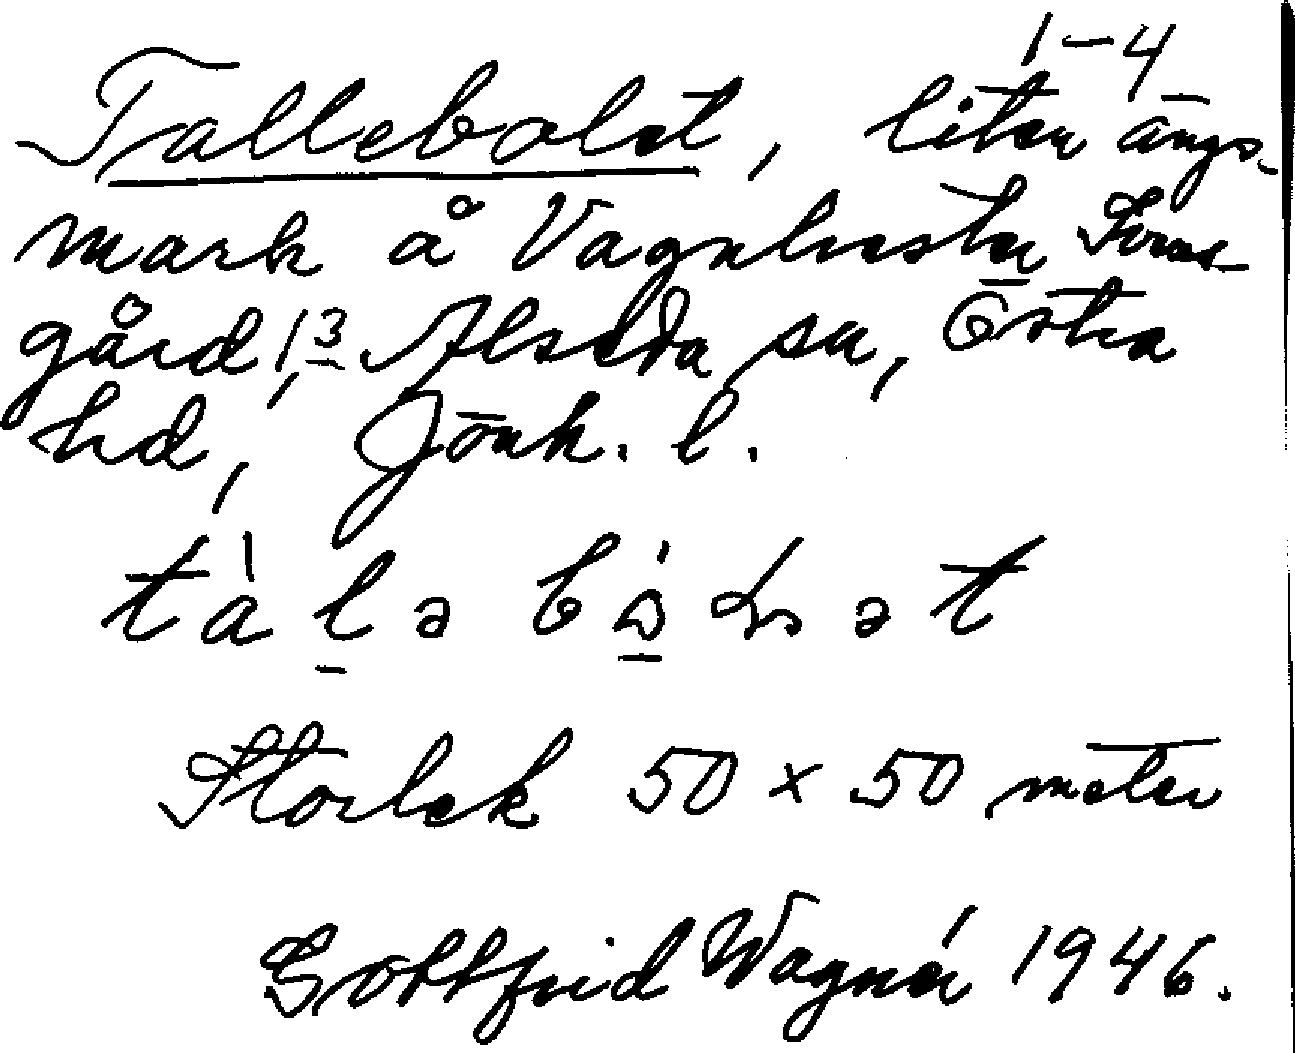 1-4
Tallebolet, liten ängs-
mark å Vagnhester Sörre-
gård 1 3, Alseda sn, Östra
hd, Jönk. l.
Storlek 50 x 50 meter
Gottfrid Wagnér 1946.